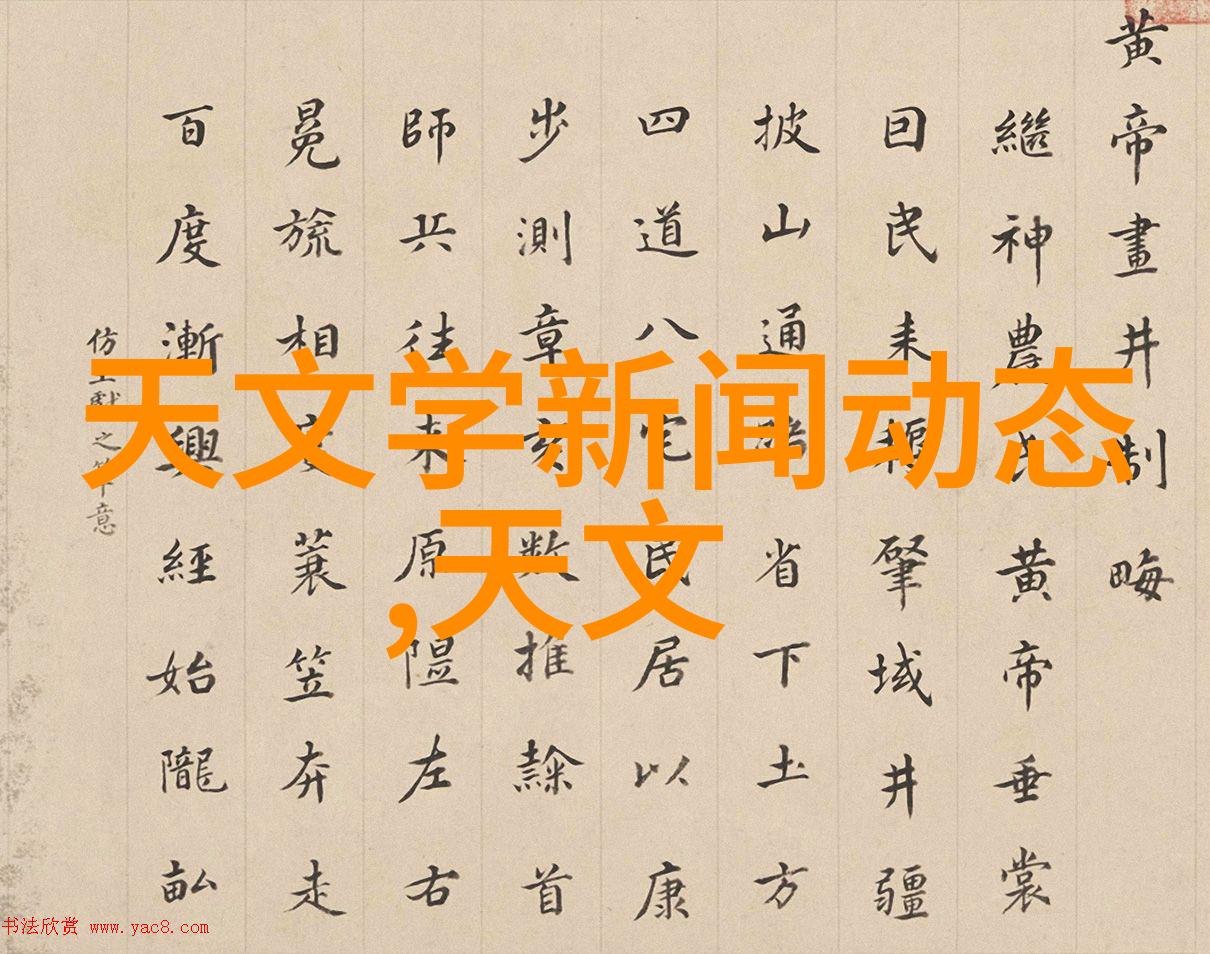 黄帝畫井制畮
繼神農氏黄帝垂裳
囙民耒肇域井疆
披山通省下土方
四道八宅民居以康
步測章亥數推隸首
師兵往来原隰左右
冕旒相蓑笠奔走
百度漸興經始隴畝
仿王獻之筆意
天文学新闻动态
,天文
书法欣赏 www.yac8.com